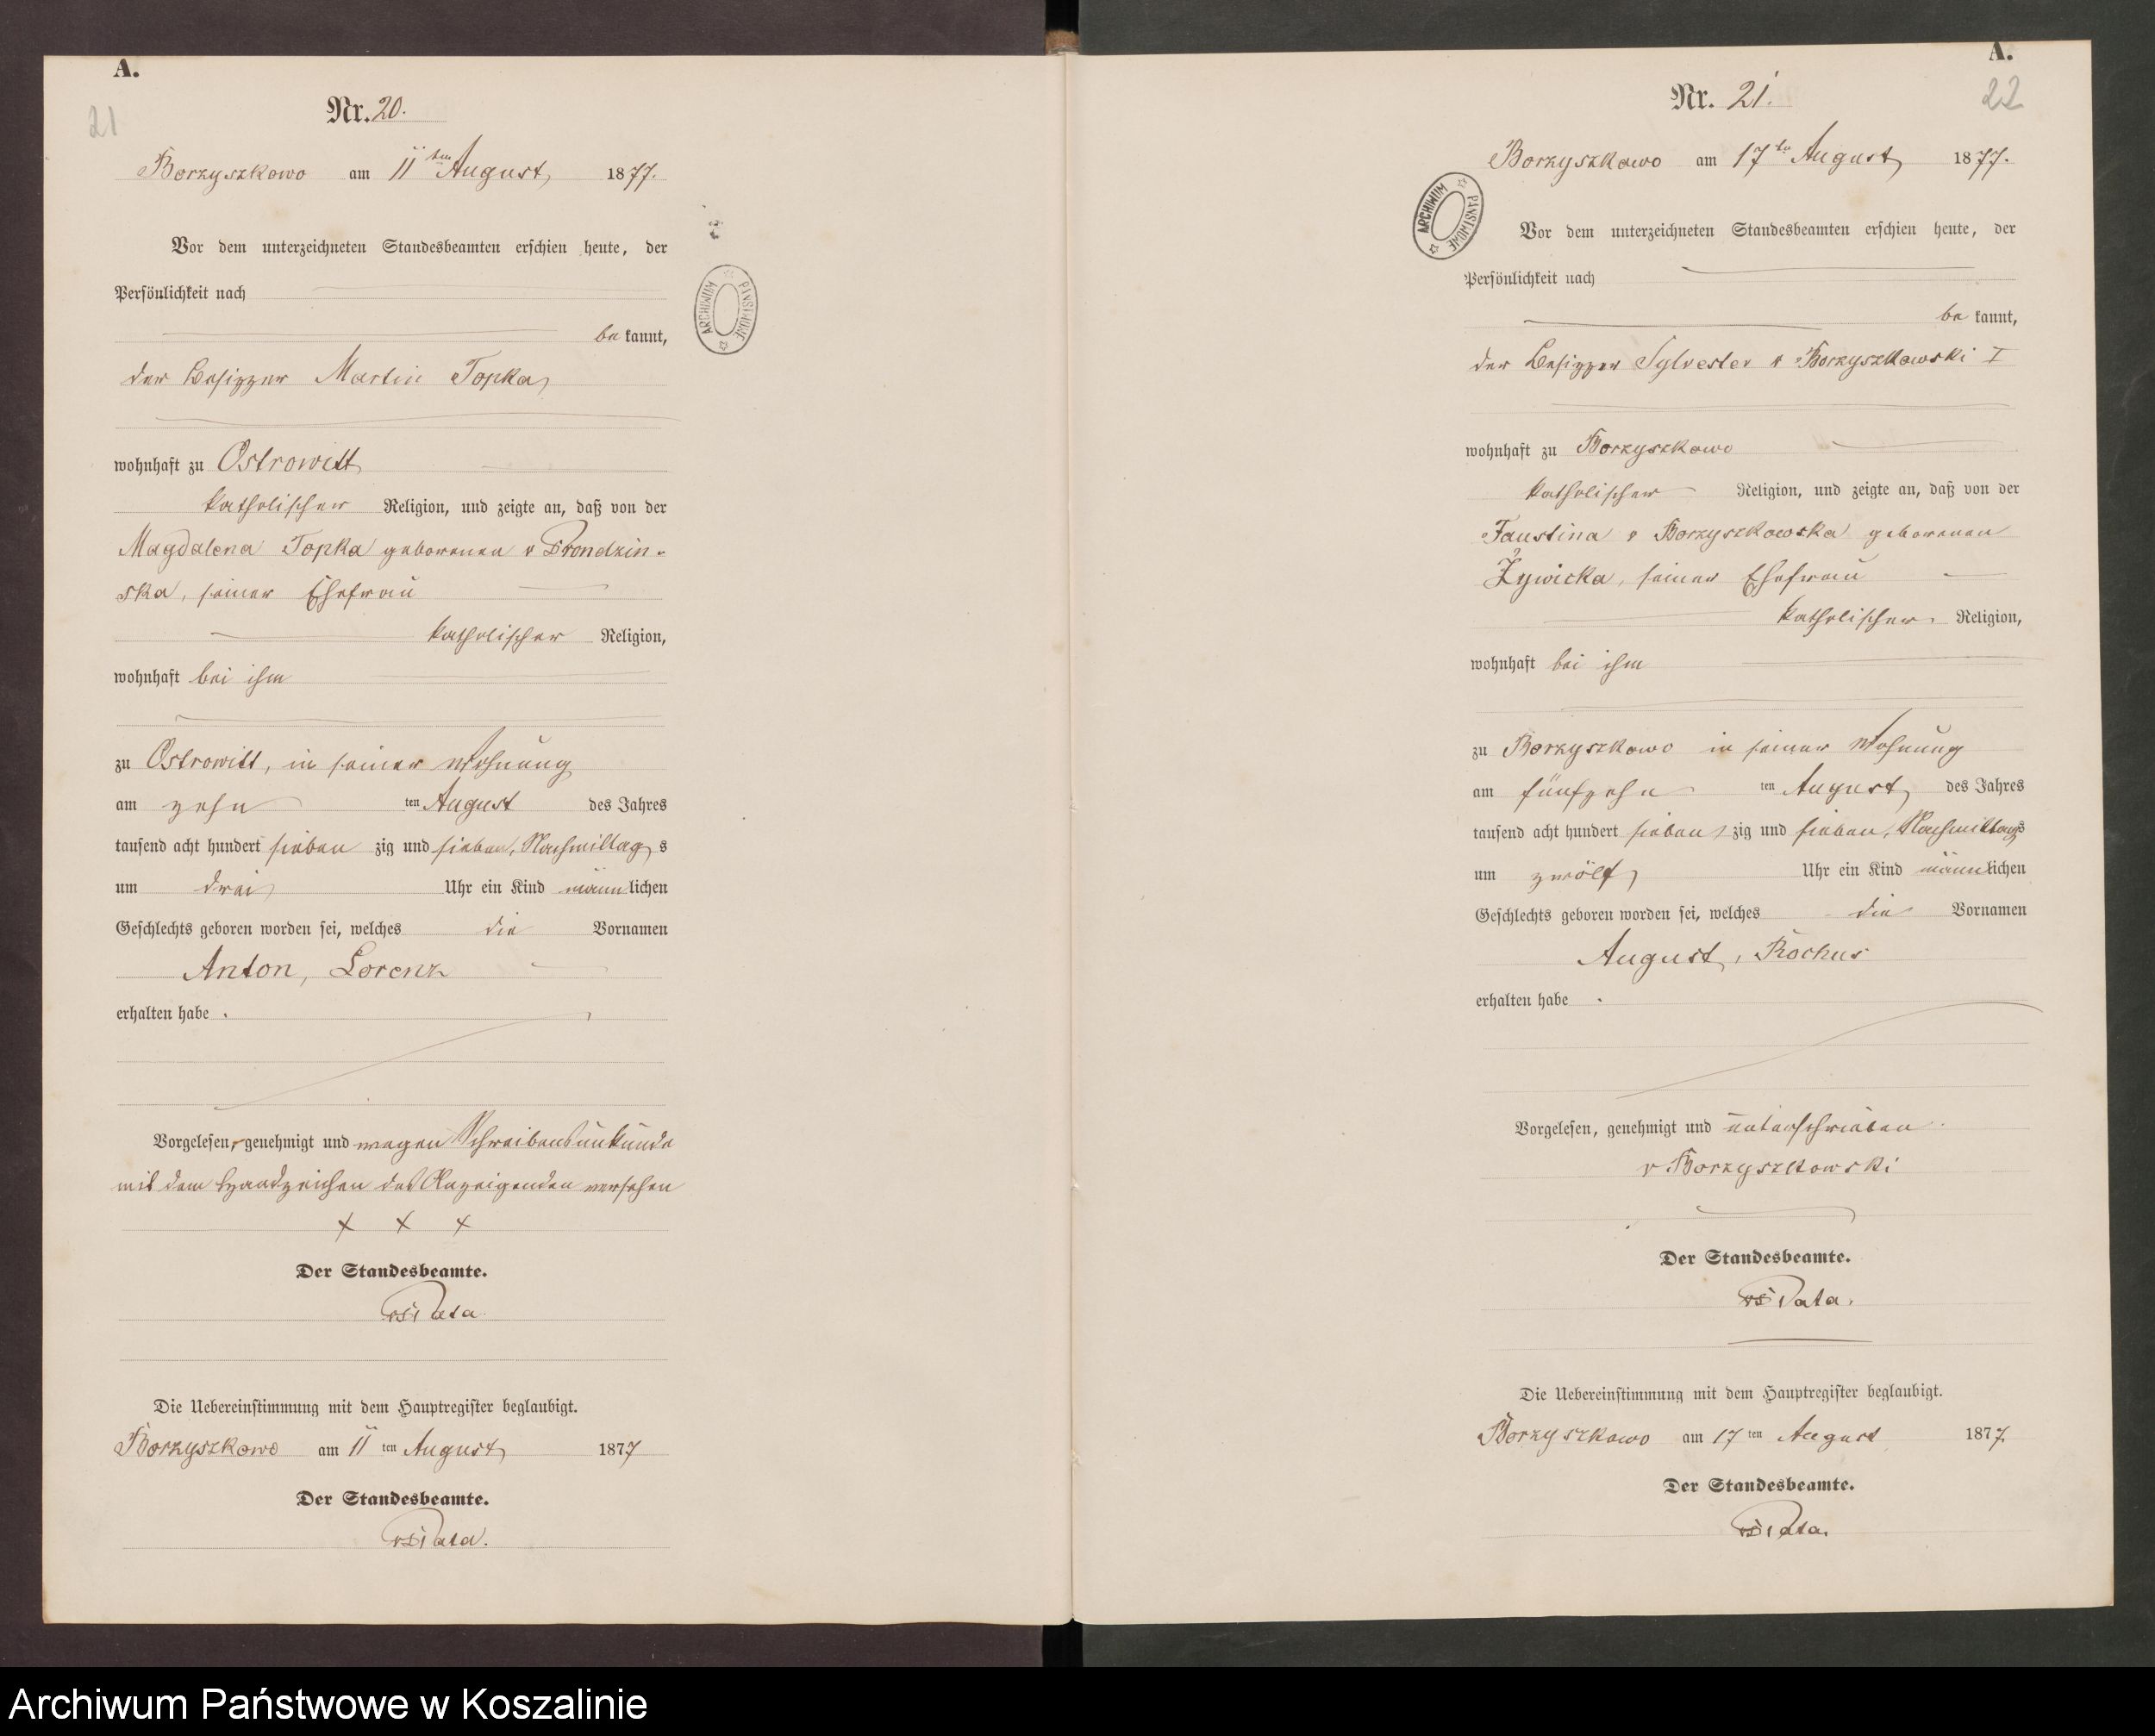 A.
21
Nr. 20.
Borzyszkowo am 11ten August 1877.
Vor dem unterzeichneten Standesbeamten erschien heute, der
Persönlichkeit nach
be kannt,
der Besitzer Martin Topka,
wohnhaft zu Ostrowitt
katholischer Religion, und zeigte an, daß von der
Magdalena Topka geborenen v Prondzin-
ska, seiner Ehefrau
katholischer Religion,
wohnhaft bei ihm
zu Ostrowitt, in seiner Wohnung
am zehn ten August des Jahres
tausend acht hundert sieben zig und sieben, Nachmittag s
um drei Uhr ein Kind männ lichen
Geschlechts geboren worden sei, welches die Vornamen
Anton, Lorenz
erhalten habe .
Vorgelesen, genehmigt und wegen Schreibensunkunde
mit dem Handzeichen des Anzeigenden versehen
x x x
Der Standesbeamte.
Pata
Die Uebereinstimmung mit dem Hauptregister beglaubigt.
Borzyszkowo am 11 ten August 1877
Der Standesbeamte.
Pata.
ARCHIWUM PAŃSTWOWE
A.
22
Nr. 21.
Borzyszkowo am 17te August 1877.
ARCHIWUM PAŃSTWOWE
Vor dem unterzeichneten Standesbeamten erschien heute, der
Persönlichkeit nach
be kannt,
der Besitzer Sylvester v Borzyszkowski I
wohnhaft zu Borzyszkowo
katholischer Religion, und zeigte an, daß von der
Faustina v Borzyszkowska geborenen
Żywicka, seiner Ehefrau
katholischer Religion,
wohnhaft bei ihm
zu Borzyszkowo in seiner Wohnung
am fünfzehn ten August des Jahres
tausend acht hundert sieben zig und sieben, Nachmittags
um zwölf Uhr ein Kind männ lichen
Geschlechts geboren worden sei, welches die Vornamen
August, Rochus
erhalten habe .
Vorgelesen, genehmigt und unterschrieben
v Borzyszkowski
Der Standesbeamte.
Pata.
Die Uebereinstimmung mit dem Hauptregister beglaubigt.
Borzyszkowo am 17 ten August 1877.
Der Standesbeamte.
Pata.
Archiwum Państwowe w Koszalinie